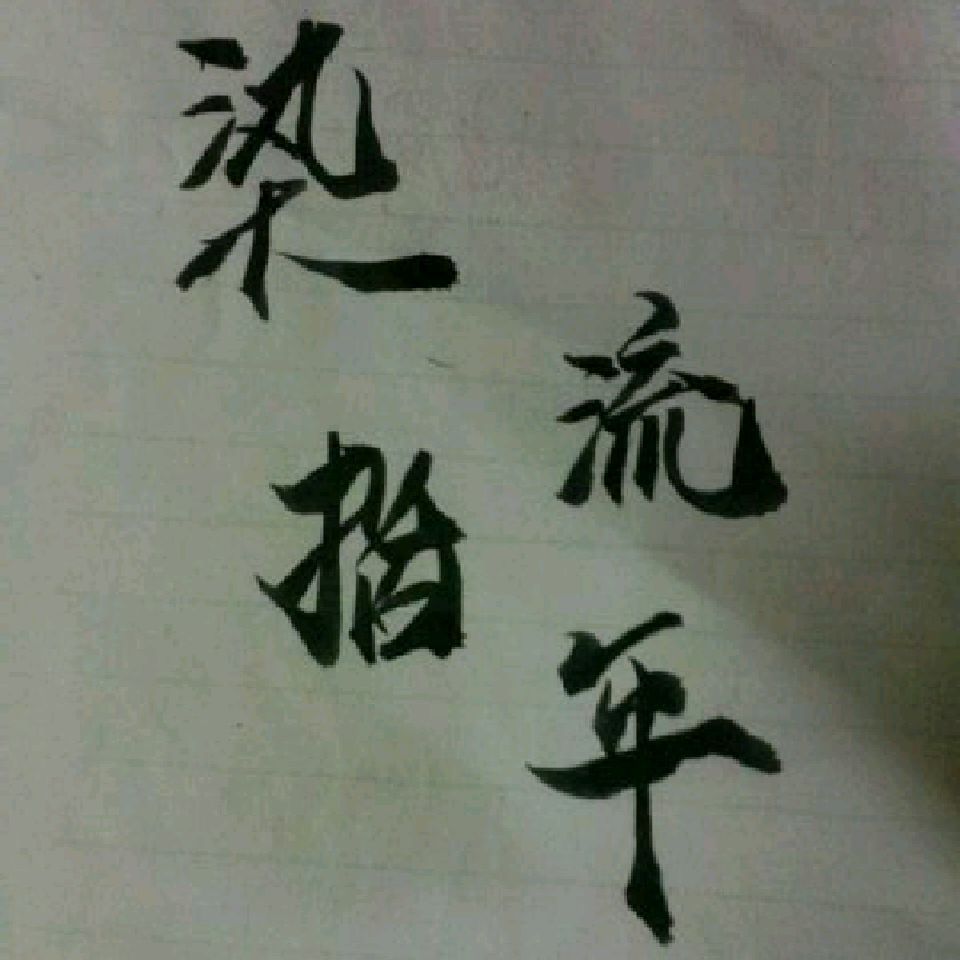 染指
流年